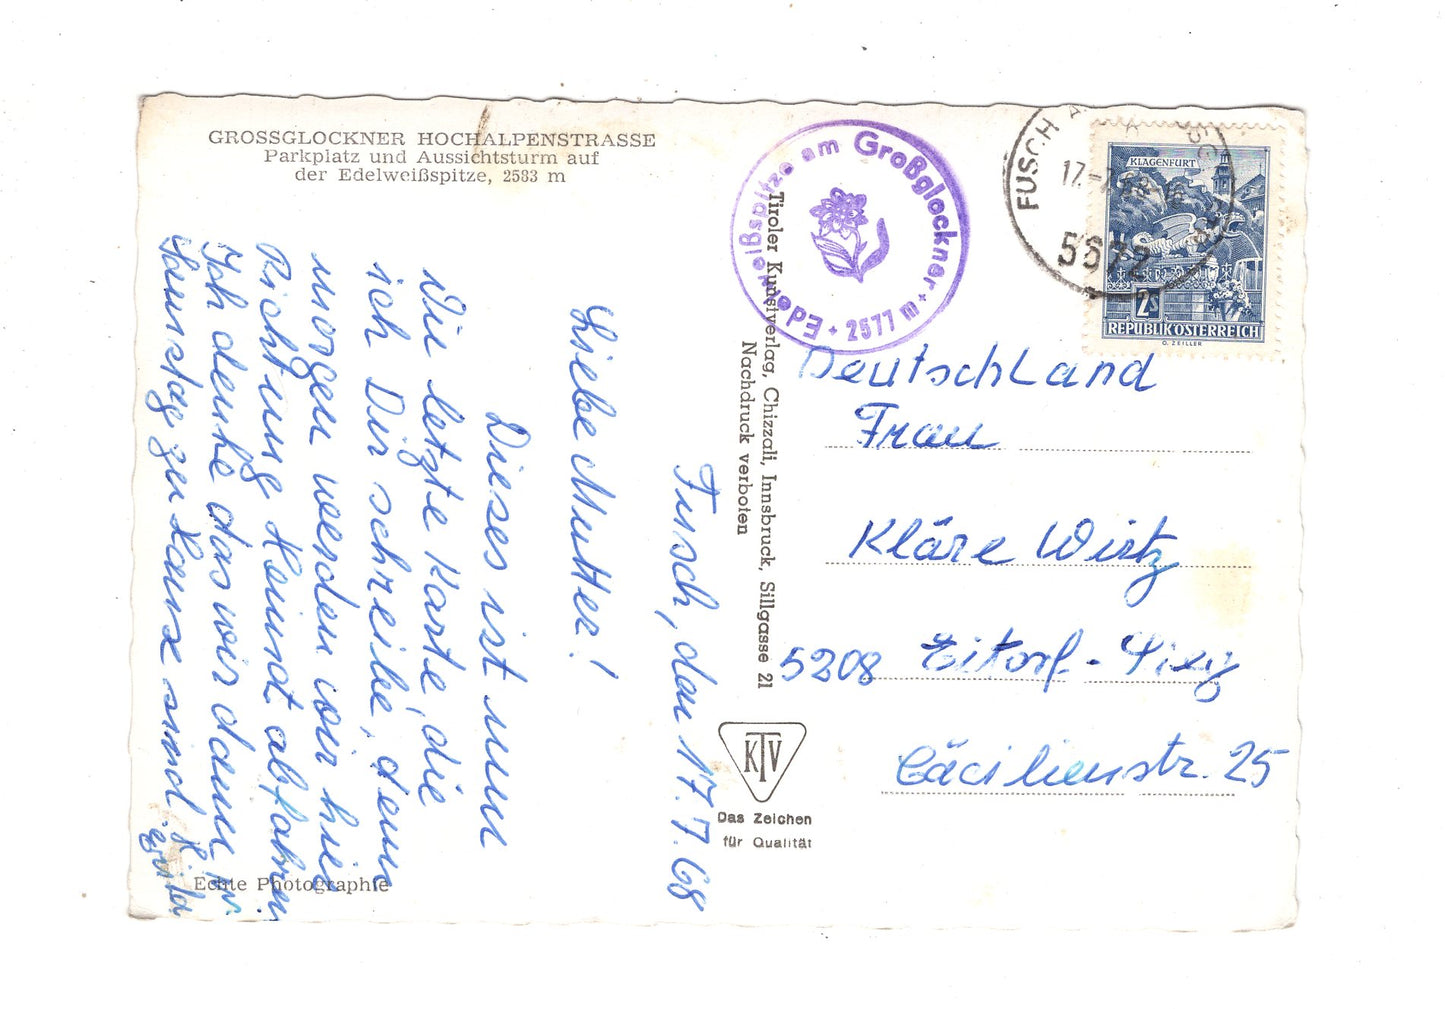 GROSSGLOCKNER HOCHALPENSTRASSE
Parkplatz und Aussichtsturm auf
der Edelweißspitze, 2583 m
Fusch, den 17.7.68
Liebe Mutter!
Dieses ist nun
die letzte Karte, die
ich Dir schreibe, denn
morgen werden wir hier
Richtung Heimat abfahren
Ich denke das wir dann
Samstag zu Hause sind.
Echte Photographie
Tiroler Kunstverlag, Chizzali, Innsbruck, Sillgasse 21
Nachdruck verboten
KTV
Das Zeichen
für Qualität
Edelweißspitze am Großglockner + 2577 m +
FUSCH A
17.-7.68-16
5672
KLAGENFURT
2s
REPUBLIK ÖSTERREICH
O. ZEILLER
Deutschland
Frau
Kläre Wirtz
5208 Eitorf-Sieg
Cäcilienstr. 25